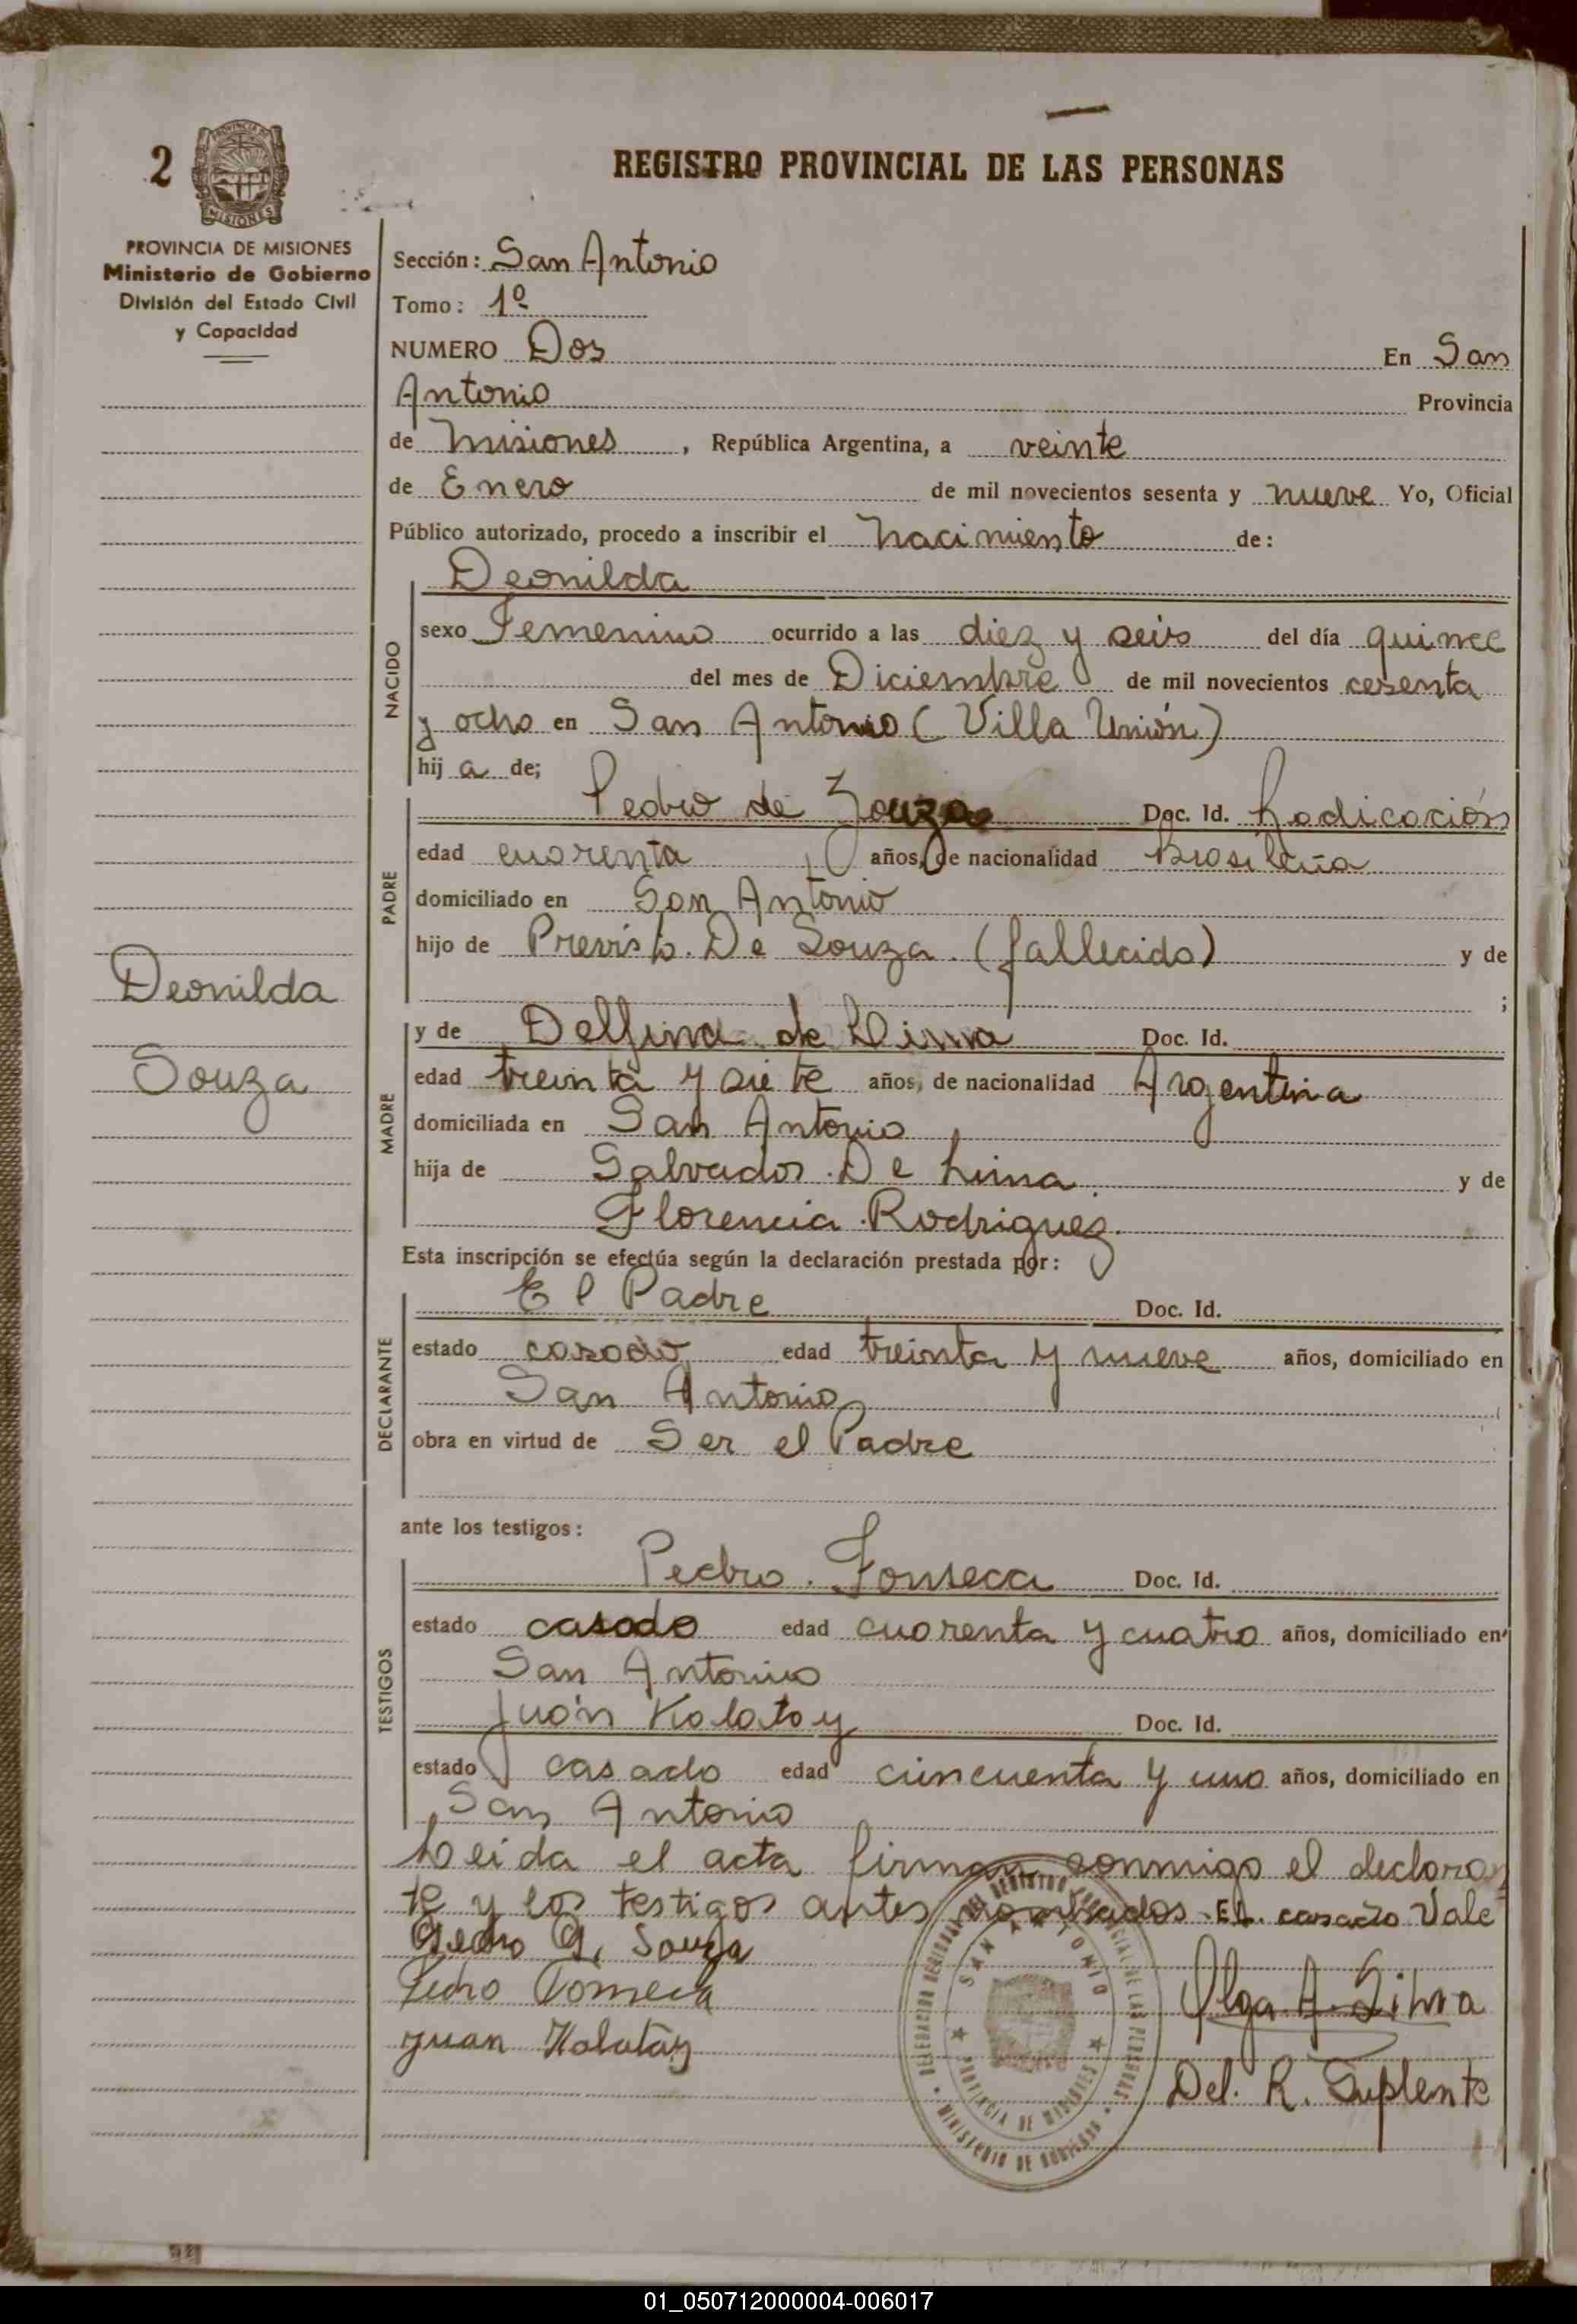 2
REGISTRO PROVINCIAL DE LAS PERSONAS
PROVINCIA DE MISIONES
Ministerio de Gobierno
División del Estado Civil
y Capacidad
Sección: San Antonio
Tomo: 1º
NUMERO Dos En San
Antonio Provincia
de Misiones, República Argentina, a veinte
de Enero de mil novecientos sesenta y nueve Yo, Oficial
Público autorizado, procedo a inscribir el nacimiento de:
NACIDO
Deonilda
sexo Femenino ocurrido a las diez y seis del día quince
del mes de Diciembre de mil novecientos cesenta
y ocho en San Antonio (Villa Unión)
hij a de;
PADRE
Pedro de Souza Doc. Id. Radicación
edad cuarenta años, de nacionalidad Brasileña
domiciliado en San Antonio
hijo de Previsto. De Souza. (fallecido) y de
;
Deonilda
Souza
MADRE
y de Delfina de Lima Doc. Id.
edad treinta y siete años, de nacionalidad Argentina
domiciliada en San Antonio
hija de Salvador. De Lima. y de
Florencia. Rodriguez.
Esta inscripción se efectúa según la declaración prestada por:
DECLARANTE
El Padre Doc. Id.
estado casado edad treinta y nueve años, domiciliado en
San Antonio
obra en virtud de Ser el Padre
ante los testigos:
TESTIGOS
Pedro. Fonseca Doc. Id.
estado casado edad cuarenta y cuatro años, domiciliado en
San Antonio
Juán Kolotoy Doc. Id.
estado casado edad cincuenta y uno años, domiciliado en
San Antonio
Leida el acta firman conmigo el declaran
te y los testigos antes nombrados. EL. casado Vale
Pedro G. Souza
Pedro Fonseca
Juan Kolotoy
Olga A. Silva
Del. R. Suplente
SAN ANTONIO
PROVINCIA DE MISIONES
MINISTERIO DE GOBIERNO
01_050712000004-006017